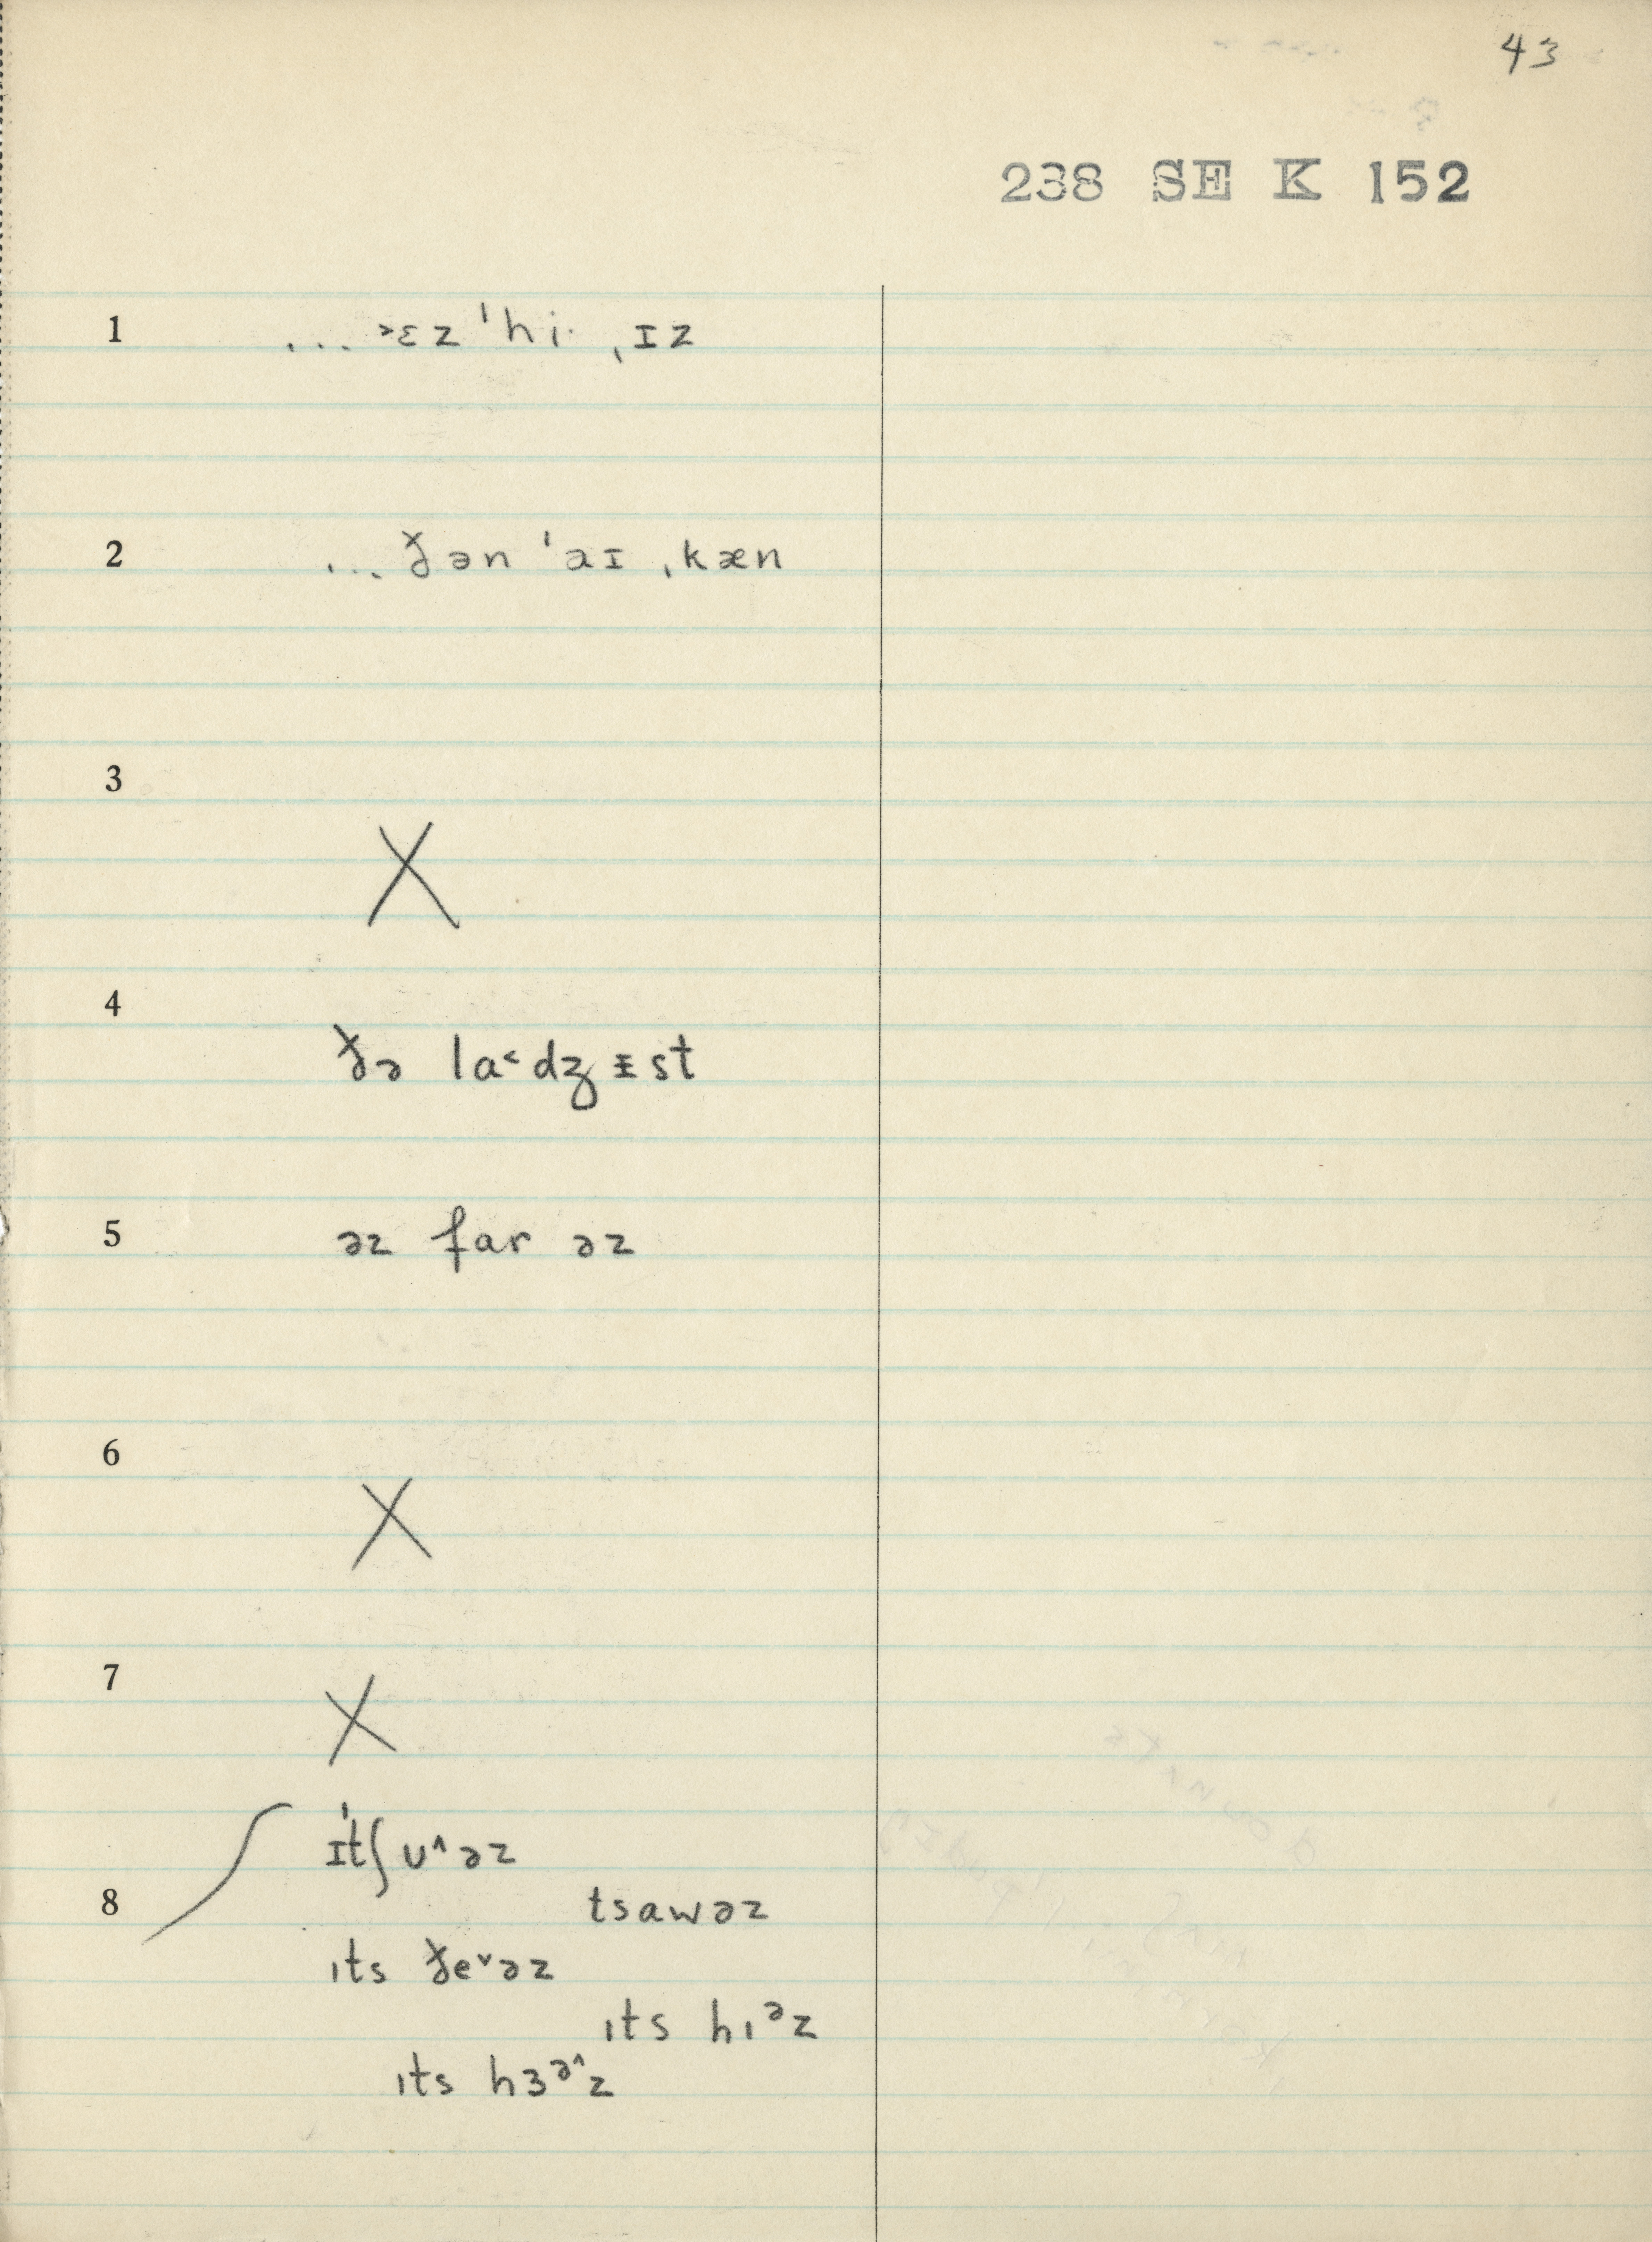 43
238 SE K 152
1 ... ˃ɛz ˈhi· ˌɪz
2 ... ðən ˈaɪ ˌkæn
3 X
4 ðə la˂dʒɪ̵st
5 əz far əz
6 X
7 X
ɪˈtʃʊ˄əz
8 tsawəz
ɪts ðe˅əz
ɪts hɪᵊz
ɪts hɜᵊ˄z